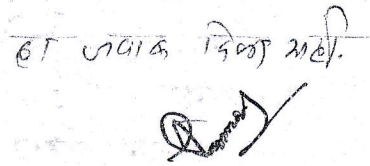 हा जबाब दिला आहे.